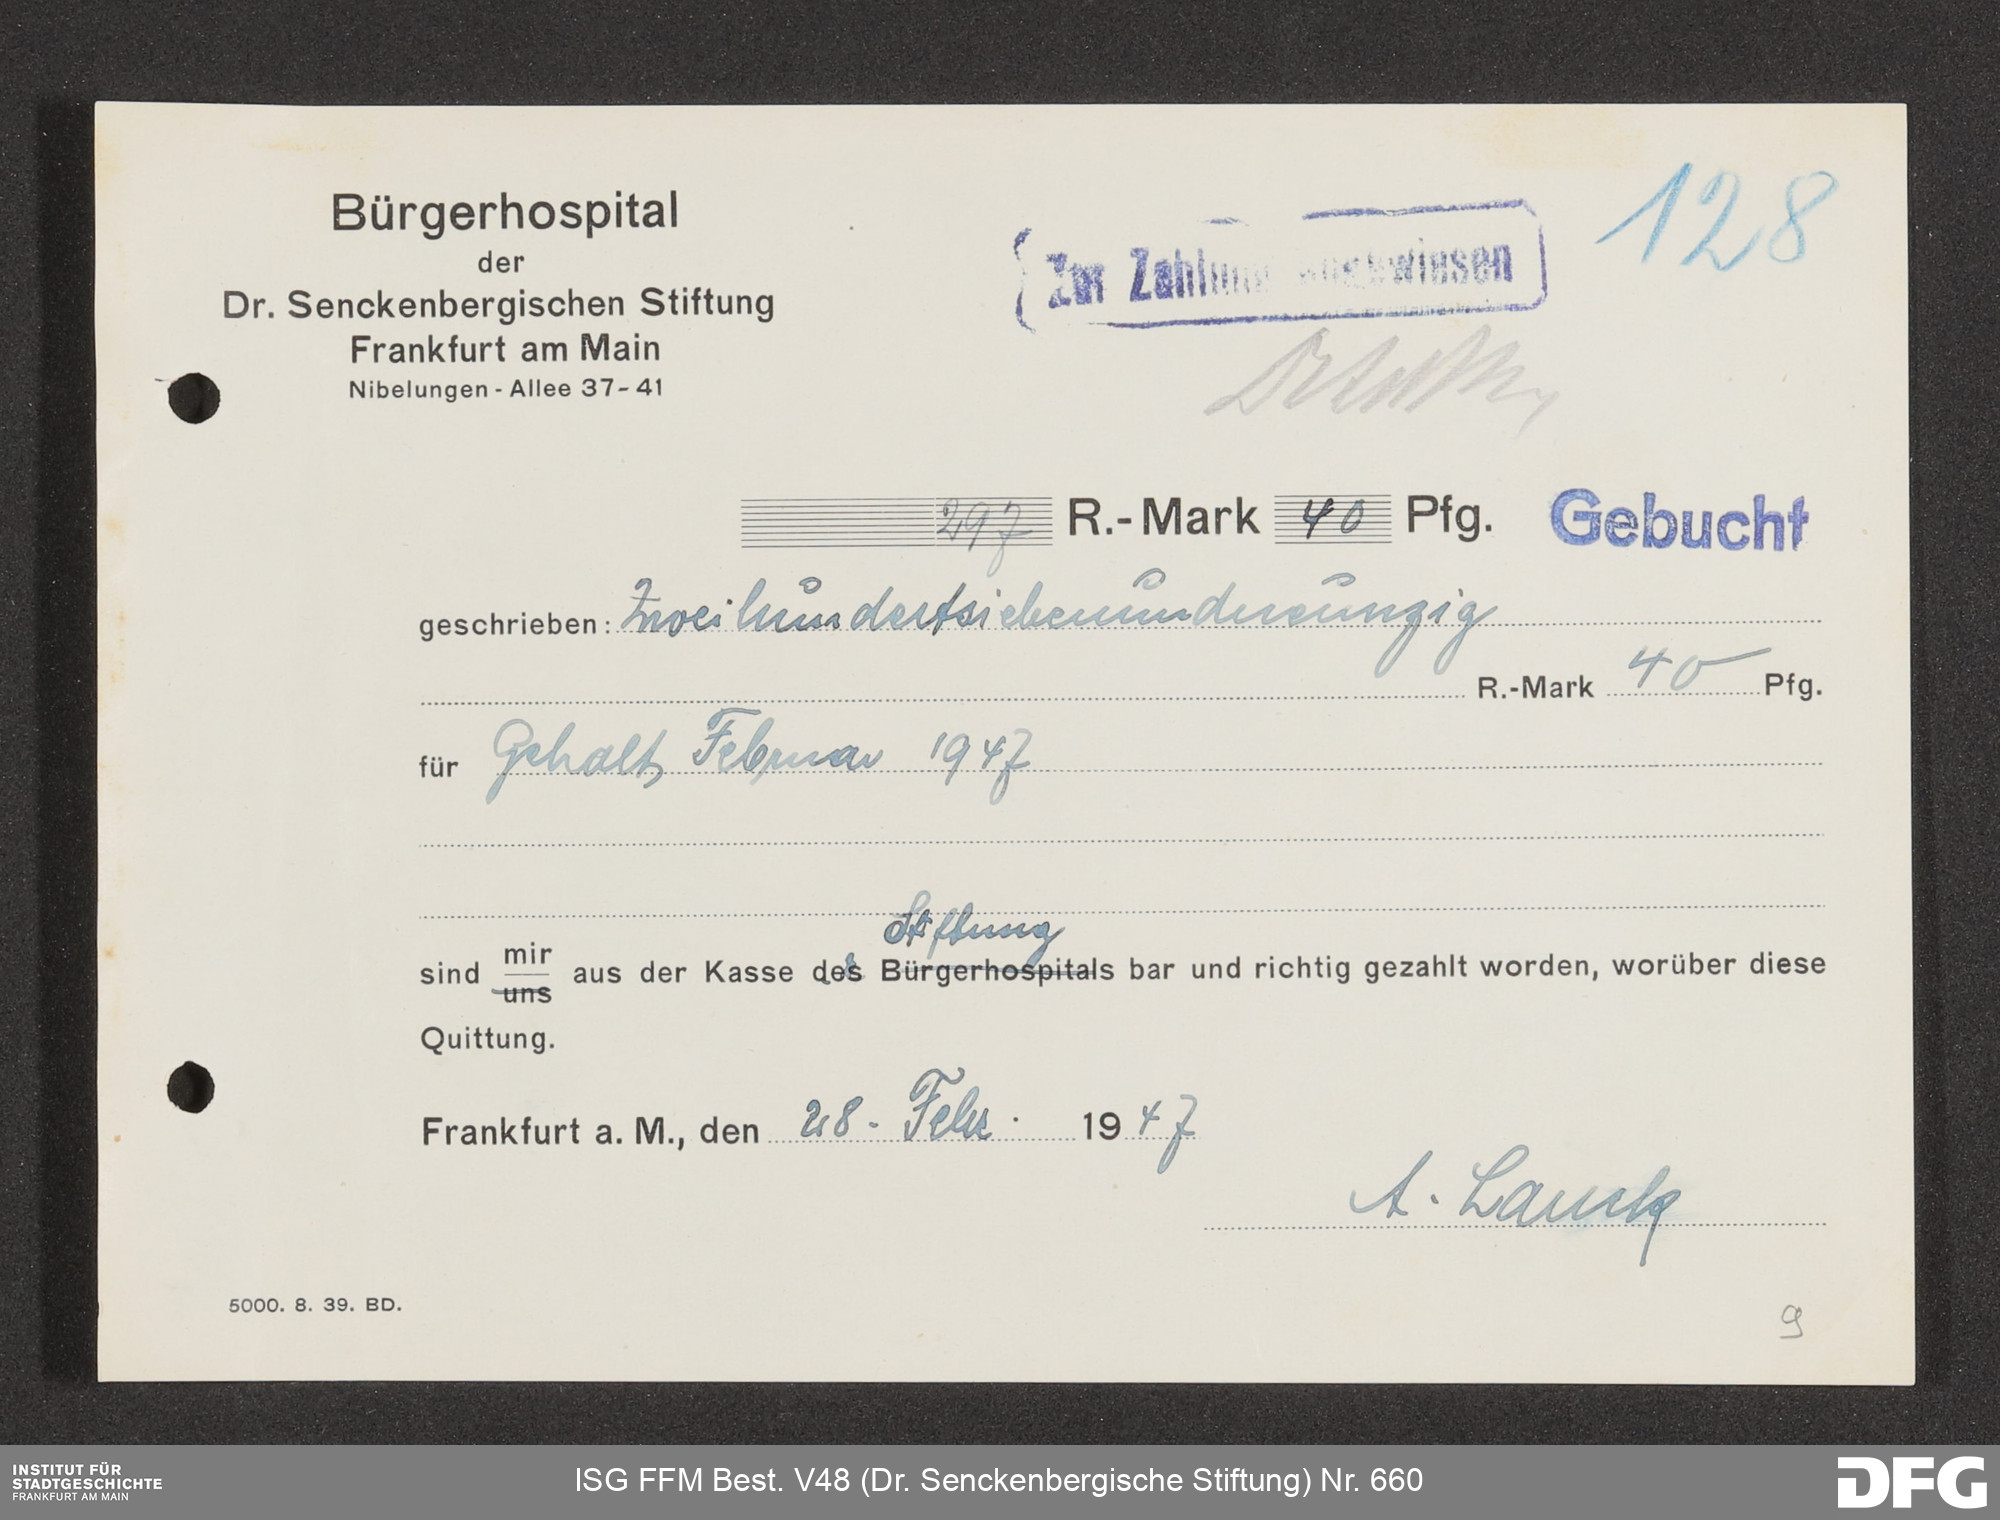 Bürgerhospital
der
Dr. Senckenbergischen Stiftung
Frankfurt am Main
Nibelungen - Allee 37-41
Zur Zahlung angewiesen
128
297 R.-Mark 40 Pfg.
Gebucht
geschrieben: Zweihundertsiebenundneunzig
R.-Mark 40 Pfg.
für Gehalt, Februar 1947
Stiftung
sind mir uns aus der Kasse der Bürgerhospitals bar und richtig gezahlt worden, worüber diese
Quittung.
Frankfurt a. M., den 28. Febr. 1947
A. Lauck
5000. 8. 39. BD.
9
INSTITUT FÜR
STADTGESCHICHTE
FRANKFURT AM MAIN
ISG FFM Best. V48 (Dr. Senckenbergische Stiftung) Nr. 660
DFG